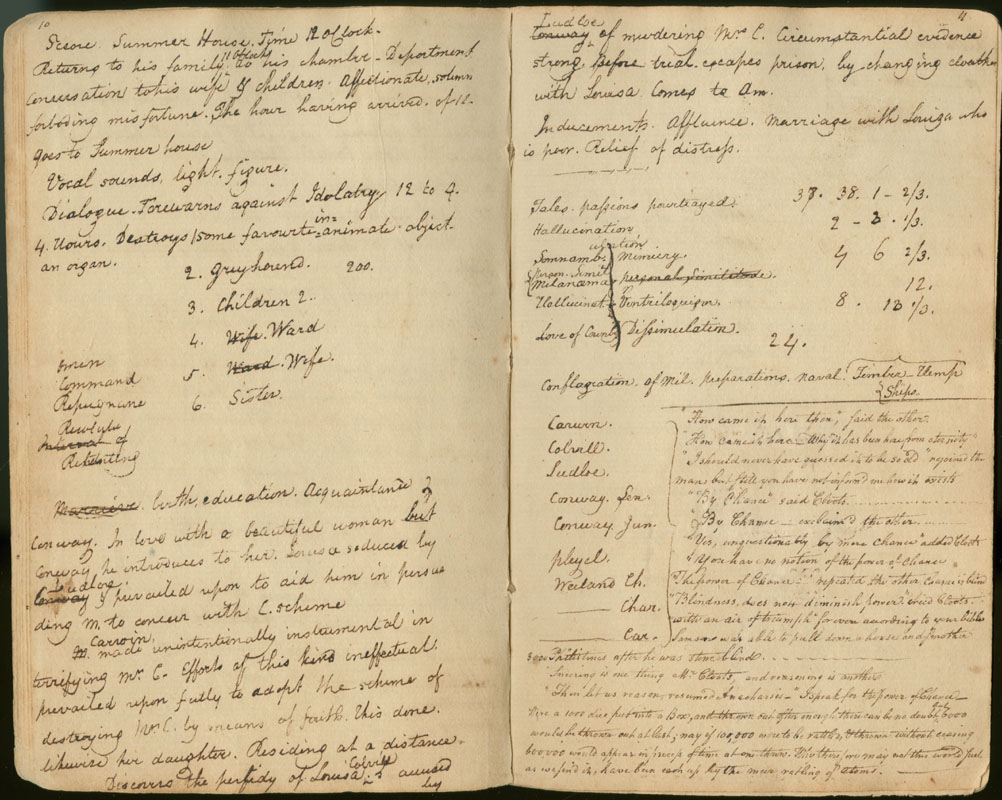 10
Scene. Summer House. Time 12 oClock.
Returns to his family, 11 oClock to his chamber. Deportment
Conversation to his wife & children. Affectionate, solemn
forboding misfortune. The hour having arrived. of 12.
goes to Summer house
Vocal sounds, light. figure.
Dialogue. Forewarns against Idolatry 12 to 4.
4 Hours. Destroys some favourite in=
=animate object.
an organ.
2. Greyhound. 200.
3. Children 2.
4. Wife. Ward
5. Ward. Wife.
6. Sister.
omen
Command
Repugnance
Resolute
Interval of
Relenting
Marriage. birth, education. Acquaintance
Conway. In love with a beautiful woman but
Conway he introduces to her. Louisa seduced by
Ludloe
Conway & prevailed upon to aid him in persua
ding M. to concur with C. scheme
Carwin
M. made unintentionally instrumental in
terrifying Mrs C. Efforts of this kind ineffectual
prevailed upon fully to adopt the scheme of
destroying Mrs C. by means of faith. This done.
likewise her daughter. Residing at a distance.
Discovers the perfidy of Louisa. Colvill is accused
by
11
Ludloe
Conway of murdering Mrs C. Circumstantial evidence
strong before trial. escapes prison, by changing cloathes
with Louisa. Comes to Am.
Inducements. Affluence. Marriage with Louiza who
is poor. Relief of distress.
Tales. passions pourtrayed. 37. 38. 1 - 2/3.
Hallucination 2 - 3. 1/3.
Somnambulation Mimicry. 4 6 2/3.
person. Simil
Melanama personal Similitude. 12.
Hallucinat. Ventriloquism. 8. 13 1/3.
Love of County Dissimulation.
24.
Conflagration of Mil. preparations. naval. Timber - Hemp
Ships.
Carwin.
Colvill.
Ludloe.
Conway. Sen.
Conway. Jun.
Pleyel.
Weiland Th.
—— Char.
—— Car.
"How came it here then," said the other.
"How came it here - Why it has been here from eternity"
"I should never have guessed it to be so old" rejoined the
man, but still you have not informed me how it exists
"By Chance" said Cloots.
"By Chance - exclaimed the other.
"Yes, unquestionably by mere chance" added Cloots
"You have no notion of the power of Chance"
"The power of Chance" repeated the other, Chance is blind
"Blindness, does not diminish power" cried Cloots.
with an air of triumph "for even according to your bibles
Samson was able to pull down a house and smother
3000 Philistines after he was stone blind.
"Sneering is one thing Mr Cloots, and reasoning is another
"Then let us reason, resumed Anacharsis" I speak for the power of Chance
Were a 1000 dice put into a Box, and thrown out often enough there can be no doubt, but 6000
would be thrown out at last; may if 100,000 were to be rattled & thrown without ceasing
600000 would appear in process of time at one throw. Why then may not this world, just
as we find it, have been cast up by the mere rattling of atoms.